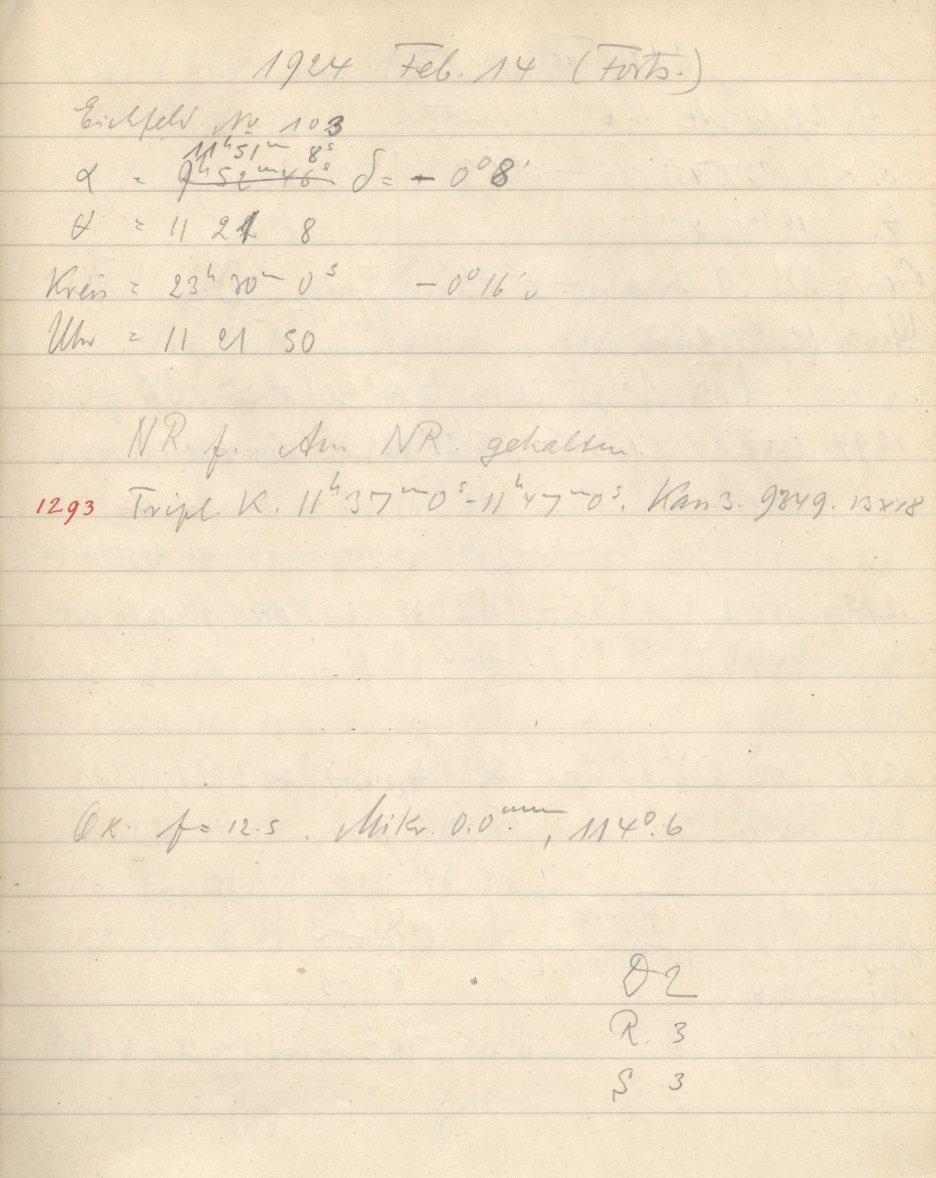 1924 Feb. 14 (Forts.)
Eichfeld No 103
11ʰ51ᵐ 8ˢ
α = 9ʰ52ᵐ46ˢ δ = - 0°8'
t = 11 21 8
Kreis = 23ʰ 30ᵐ 0ˢ - 0°16'
Uhr = 11 21 50
NR f. Am NR. gehalten.
1293 Tripl. K. 11ʰ37ᵐ0ˢ-11ʰ47ᵐ0ˢ. Kas. 3. 9349. 13x18
Ok. f = 12.5. Mikr. 0.0ᵐᵐ, 114°.6
D 2
R. 3
S 3